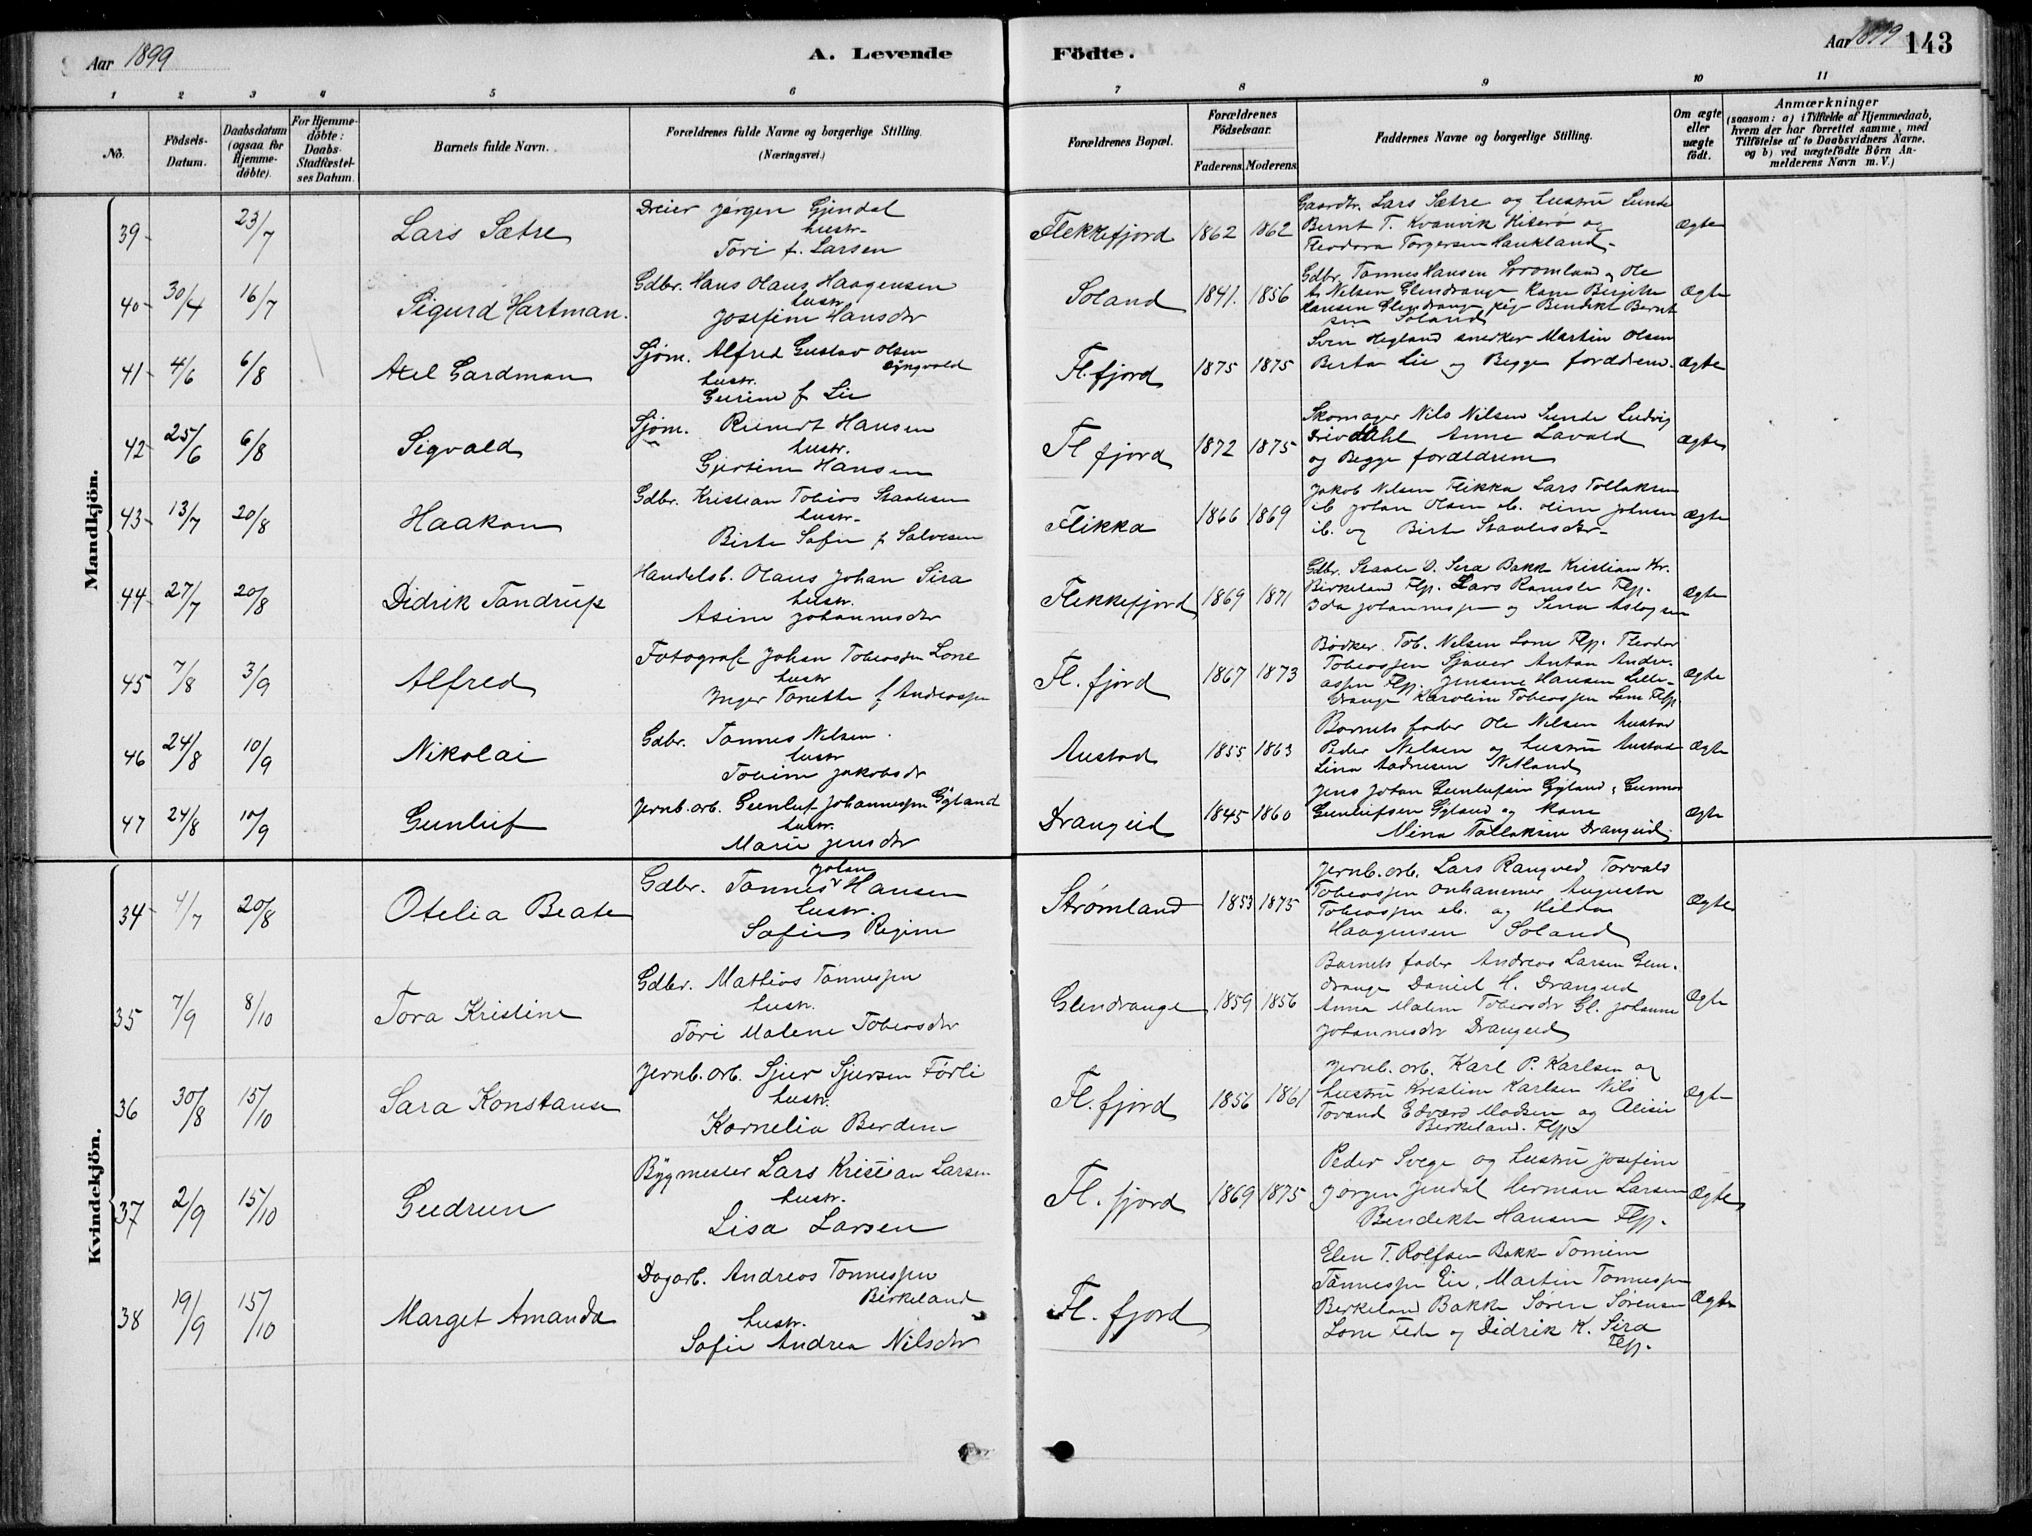 Aar 1899
A. Levende
Födte.
Aar 1899
143
1 2 3 4 5 6 7 8 9 10 11
No.
Födsels-
Datum.
Daabsdatum
(ogsaa for
Hjemme-
döbte).
For Hjemme-
döbte:
Daabs-
Stadfæstel-
ses Datum.
Barnets fulde Navn.
Forældrenes fulde Navne og borgerlige Stilling.
(Næringsvei.)
Forældrenes Bopæl.
Forældrenes
Födselsaar.
Faderens. Moderens.
Faddernes Navne og borgerlige Stilling.
Om ægte
eller
uægte
födt.
Anmærkninger
(saasom: a) i Tilfælde af Hjemmedaab,
hvem der har forrettet samme, med
Tilföielse af to Daabsvidners Navne.
og b) ved uægtefödte Börn An-
melderens Navn m. V.)
Mandkjön.
39 23/7 Lars Sætre
Dreier Jørgen Gjendal
hustr.
Tori f. Larsen
Flekkefjord 1862 1862
Gaardbr. Lars Sætre og hustru Sunde
Bernt T. Kvanvik Hiterø og
Theodora Torgersen Haukland
Ægte
40 30/4 16/7 Sigurd Hartman.
Gdbr. Hans Olaus Haagensen
hustr.
Josefine Hansdtr
Soland 1841. 1856
Gdbr. Tønnes Hansen Strømland, Ole
A. Nilsen Glendrange Kone Birgitte
Hansen Glendrange pige Bendikte Bernt
sen Soland
Ægte
41 4/6 6/8 Axel Gardman
Sjøm. Alfred Gustav Olsen
Øyngvold
hustr.
Gurine f Lie
Fl. fjord 1875 1875
Sven Hegland snedker Martin Olsen
Berta Lie og Begge forældrene.
Ægte
42 25/6 6/8 Sigvald
Sjøm. Reinert Hansen
hustr.
Gjertine Hansen
Fl fjord 1872 1875
Skomager Nils Nilsen Sunde Ludvig
Drivdahl Anne Lavold
og Begge forældrene
Ægte
43 13/7 20/8 Haakon
Gdbr. Kristian Tobias Staalesen
hustr.
Birte Sofie f Salvesen
Flikka 1866 1869
Jakob Nilsen Flikka Lars Tollaksen
ib Johan Olsen ib. Oline Johnsen
ib. og Birte Staalesdtr
Ægte
44 27/7 20/8 Didrik Tandrup
Handelsb. Olaus Johan Sira
hustr.
Asine Johannesdtr
Flekkefjord 1869 1871
Gdbr. Staale D. Sira Bakke Kristian Kr.
Birkeland Flfj. Lars Ramsli Flfj.
Ida Johannessen og Sina Aslagsen
Ægte
45 7/8 3/9 Alfred
Fotograf Johan Tobiassen Lone
hustr
Inger Tonette f Andreassen
Fl. fjord 1867 1873
Bødker Tob. Nilsen Lone Flfj. Theodor
Tobiassen Sjøuer Anton Andre-
assen Flfj. Jensine Hansen Lille-
drange Karoline Tobiassen Lone Flfj.
Ægte
46 24/8 10/9 Nikolai
Gdbr. Tønnes Nilsen.
hustr
Tobine Jakobsdtr
Austad 1855 1863
Barnets fader Ole Nilsen Austad
Peder Nilsen og hustru Austad
Lina Andresen Netland
Ægte
47 24/8 10/9 Gunluf
Jernb. arb. Gunluf Johannessen Gyland
hustr.
Marie Jensdtr
Drangeid 1845 1860
Jens Johan Gunlufsen Gyland, Gunnar
Gunlufsen Gyland og Kone
Mina Tollaksen Drangeid
Ægte
Kvindekjön.
34 4/7 20/8 Otelia Beate
Johan
Gdbr. Tønnes Hansen
hustr.
Sofie Regine
Strømland 1853 1875
Jernb. arb. Lars Rangved Torvald
Tobiassen Augusta
Tobiassen ib. og Hilda
Haagensen Soland
Ægte
35 7/9 8/10 Tora Kristine
Gdbr. Mathias Tønnessen
hustr.
Tori Malene Tobiasdtr
Glendrange 1859 1856
Barnets fader Andreas Larsen Glen-
drange Daniel H. Drangeid
Anna Malene Tobiasdtr Gl. Johanne
Johannesdtr Drangeid
Ægte
36 30/8 15/10 Sara Konstanse
Jernb. arb. Sjur Sjursen Førli
hustr.
Kornelia Berdine
Fl. fjord 1856 1861
Jernb. arb. Karl P. Karlsen og
hustru Kristine Karlsen Nils
Tovand Edvard Madsen og Alisie
Birkeland. Flfj
Ægte
37 2/9 15/10 Gudrun
Bygmester Lars Kristian Larsen
hustr.
Lisa Larsen
Fl. fjord 1869 1875
Peder Svege og hustru Josefine
Jørgen Jendal Herman Larsen
Bendikte Hansen Flfj.
Ægte
38 19/9 15/10 Marget Amanda
Dagarb. Andreas Tønnessen
Birkeland
hustr.
Sofie Andrea Nilsdtr
Fl. fjord
Elen T. Rolfsen Bakke Tomine
Tønnessen Eie, Martin Tønnessen
Birkeland Bakke Søren Sørensen
Lone Fede og Didrik K. Sira
Flfj.
Ægte